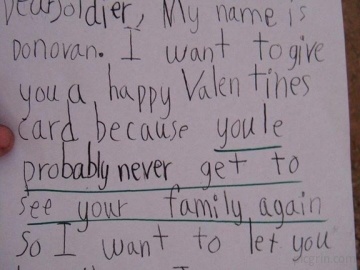 Dear Soldier, My name is
Donovan. I want to give
you a happy Valentines
card because youle
probably never get to
see your family again
So I want to let you